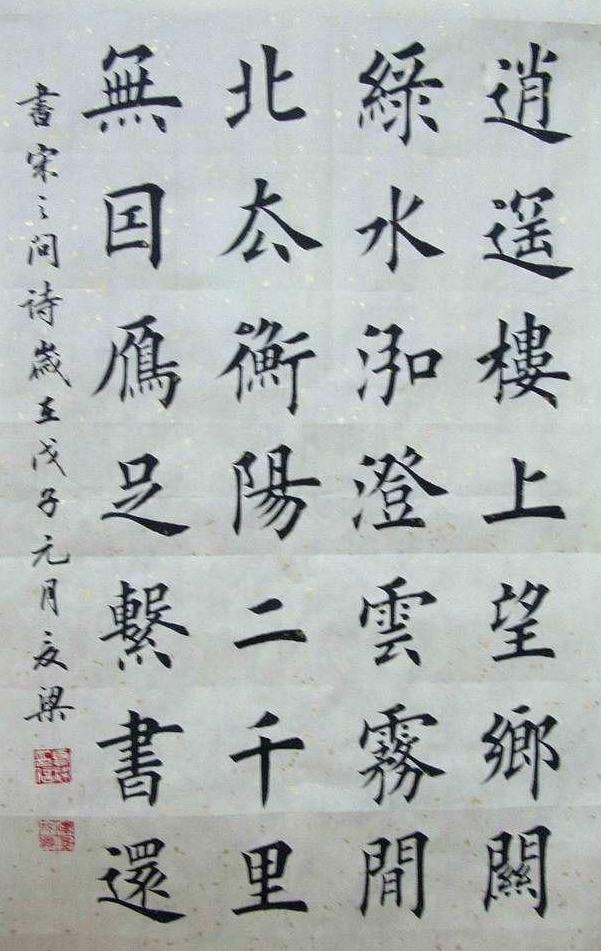 逍遙樓上望鄉關
綠水泓澄雲霧閒
北去衡陽二千里
無囙鴈足繫書還
書宋之問詩歲在戊子元月梁